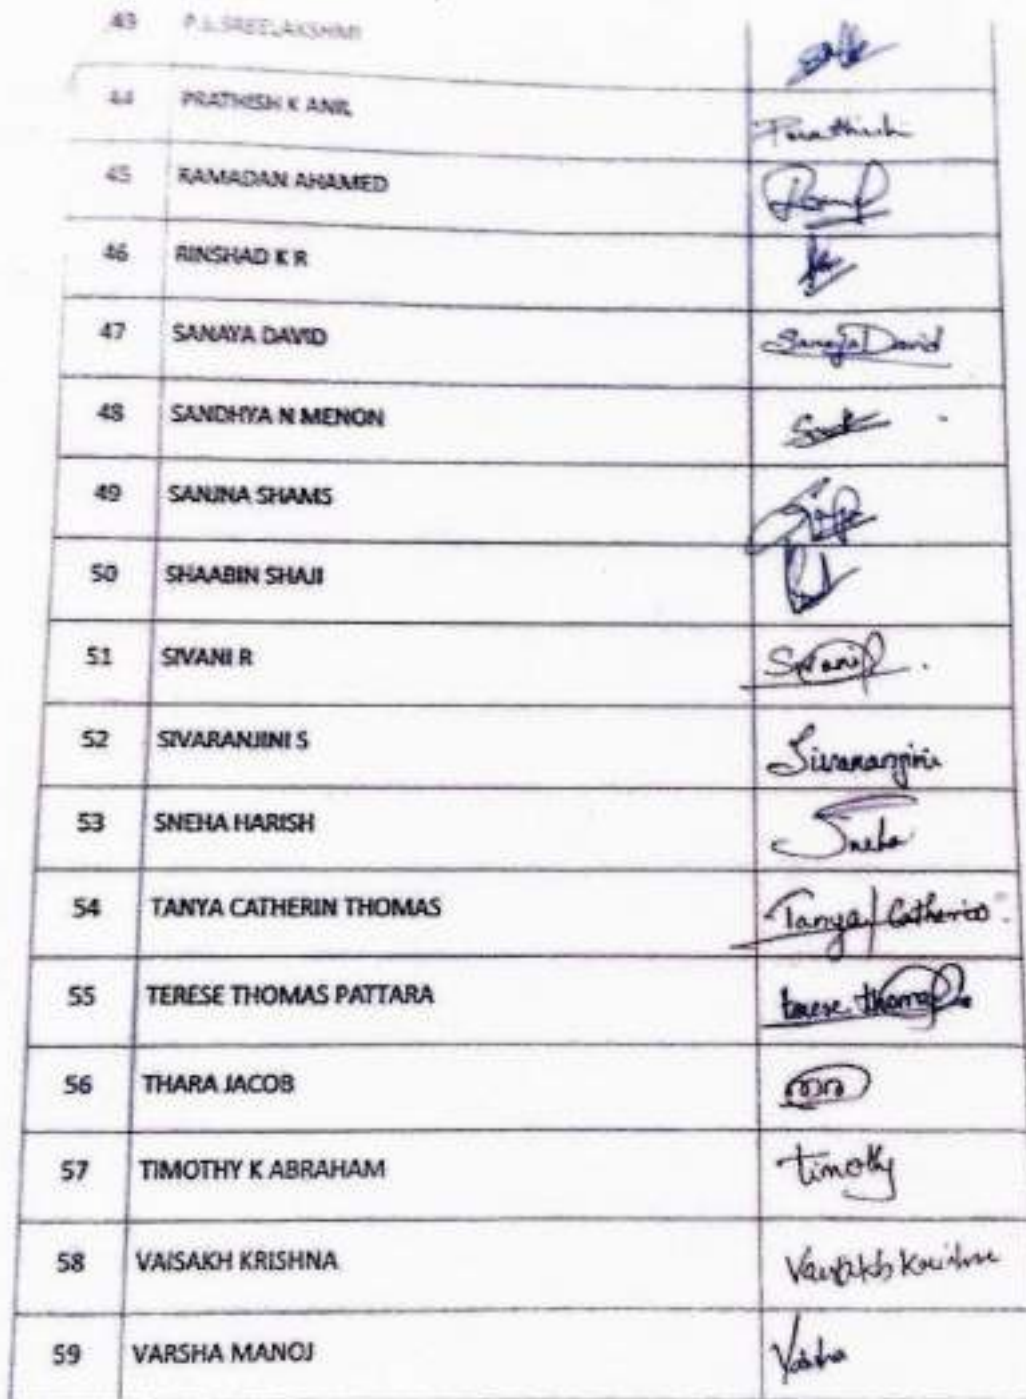 43 P.S.SREELAKSHMI
44 PRATHISH K ANIL Prathish
45 RAMADAN AHAMED
46 RINSHAD K R
47 SANAYA DAVID Sanaya David
48 SANDHYA N MENON
49 SANJNA SHAMS
50 SHAABIN SHAJI
51 SIVANI R Sivani R
52 SIVARANJINI S Sivaranjini
53 SNEHA HARISH Sneha
54 TANYA CATHERIN THOMAS Tanya Catherin
55 TERESE THOMAS PATTARA terese thomas
56 THARA JACOB
57 TIMOTHY K ABRAHAM timothy
58 VAISAKH KRISHNA Vaisakh Krishna
59 VARSHA MANOJ Varsha